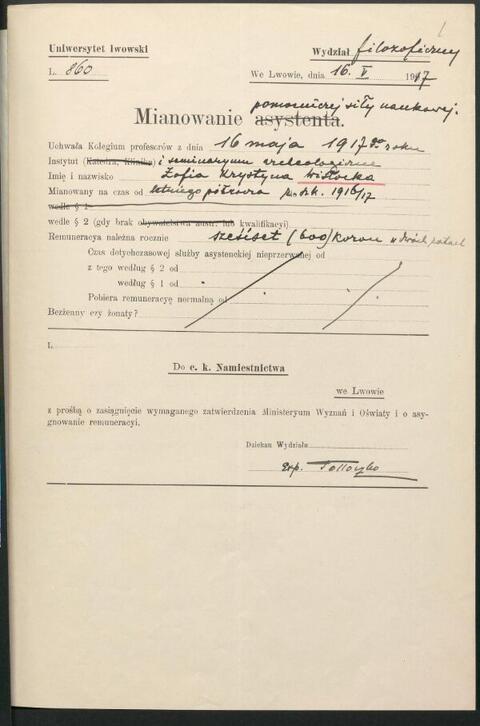 1
Uniwersytet lwowski
Wydział filozoficzny
L. 860
We Lwowie, dnia 16. V 1917
pomocniczej siły naukowej.
Mianowanie asystenta.
Uchwała Kolegium profesorów z dnia 16 maja 1917 go roku
Instytut (Katedra, Klinika) i seminaryum archeologiczne
Imię i nazwisko Zofia Krystyna
Mianowany na czas od letniego półrocza r. szk. 1916/17
wedle § 1
wedle § 2 (gdy brak obywatelstwa austr. lub kwalifikacyi)
Remuneracya należna rocznie sześćset (600) koron w dwóch ratach
Czas dotychczasowej służby asystenckiej nieprzerwanej od
z tego według § 2 od
według § 1 od
Pobiera remuneracyę normalną od
Bezżenny czy żonaty?
L.
Do c. k. Namiestnictwa
we Lwowie
z prośbą o zasiągnięcie wymaganego zatwierdzenia Ministeryum Wyznań i Oświaty i o asy-
gnowanie remuneracyi.
Dziekan Wydziału
Tołłoczko